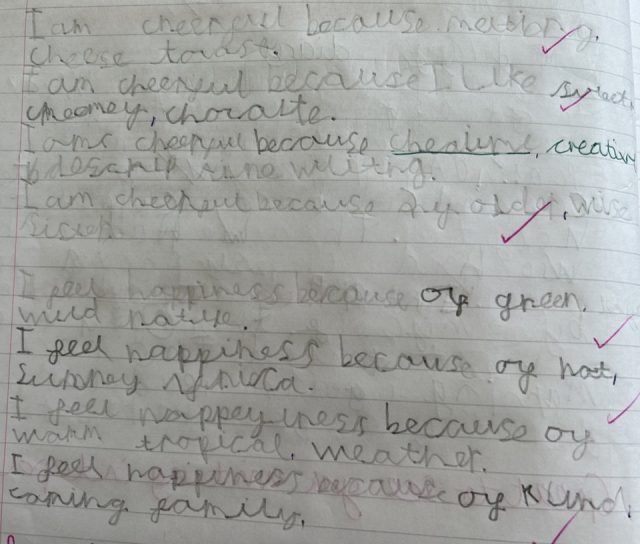 I am cheerful because melting,
cheese toast.
I am cheerful because I Like sweet
creamey, choralte.
I am cheerful because creative
writing.
I am cheerful because my older, wise
sister.
I feel happiness because of green,
wild nature.
I feel happiness because of hot,
sunney Africa.
I feel happeyness because of
warm tropical, weather.
I feel happiness because of kind,
caring family.